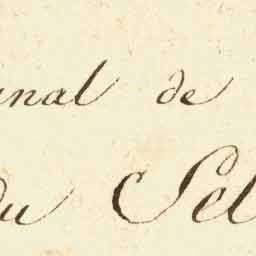 unal de
du Pel